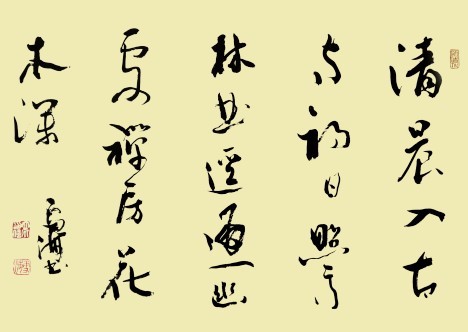 清晨入古
寺初日照高
林曲逕通幽
處禪房花
木深